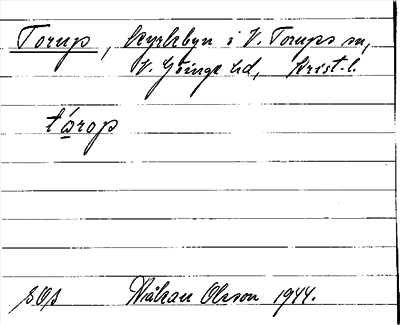 Torup, kyrkbyn i V. Torups sn,
V. Göinge hd, Krist. l.
tárop
sOs Håkan Olsson 1944.